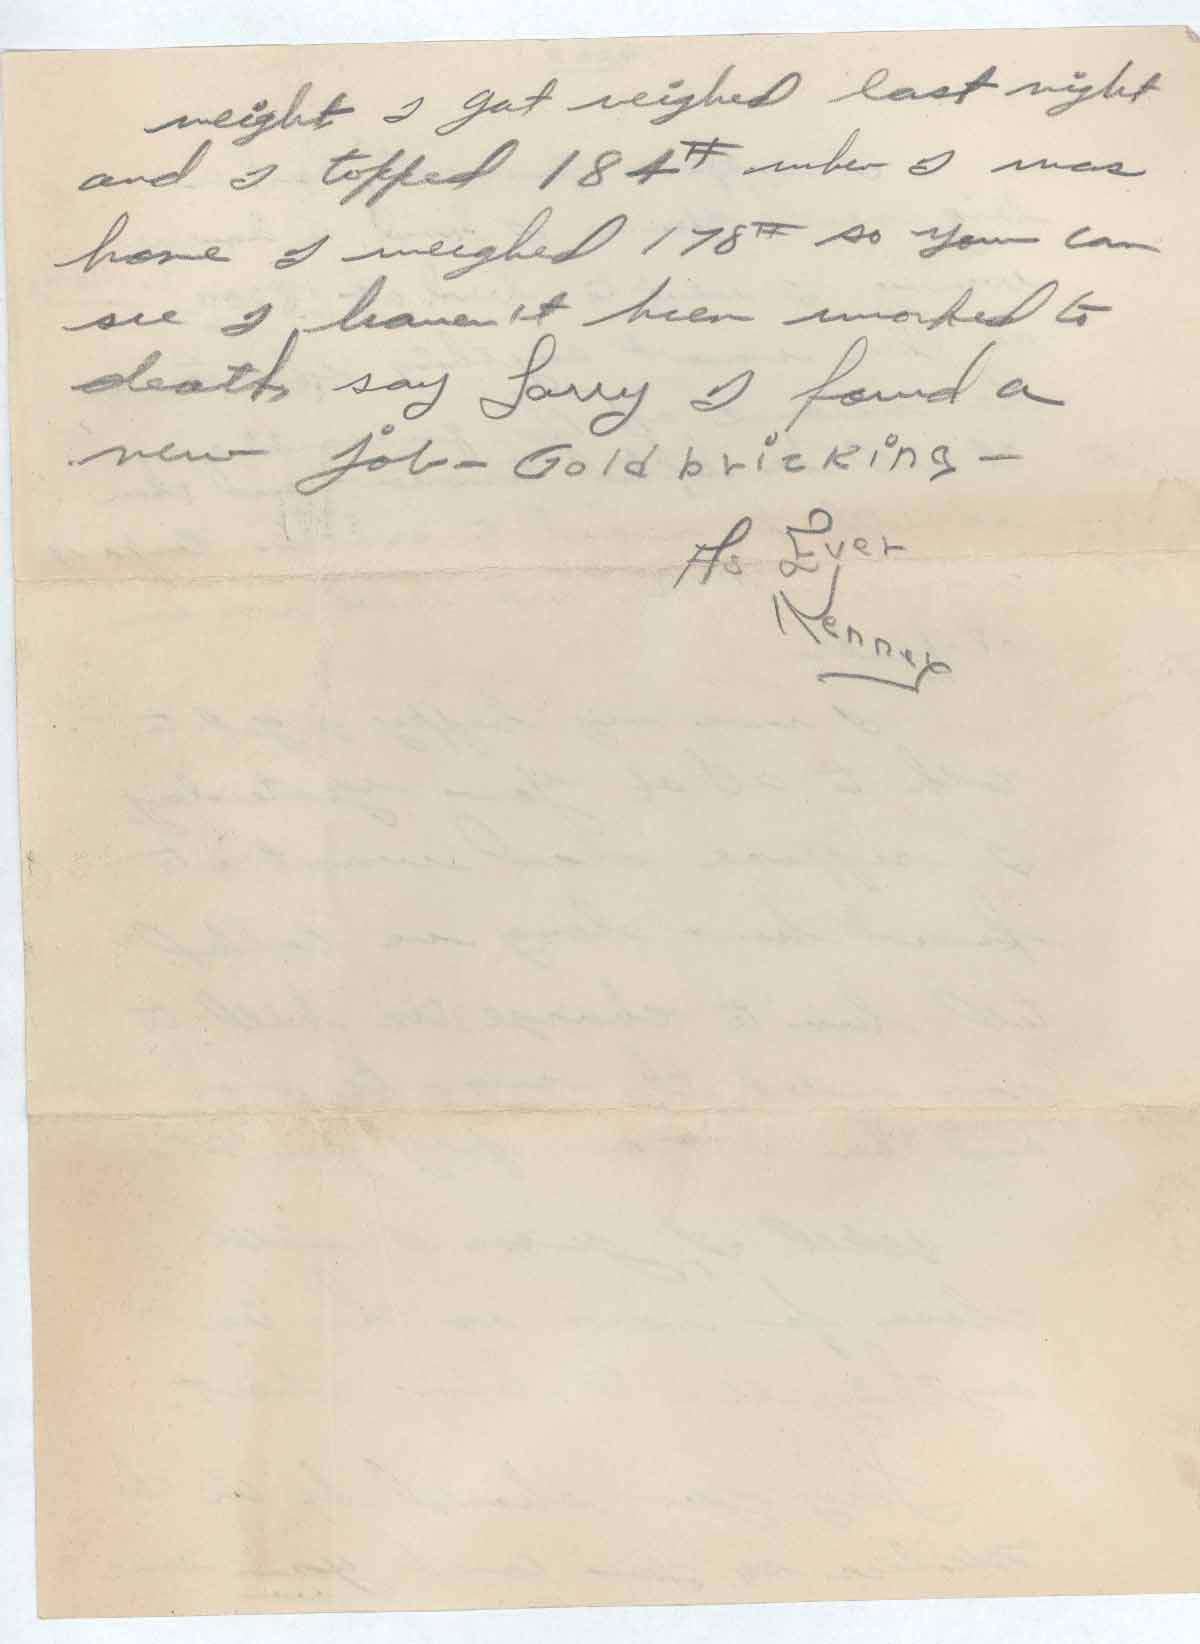 weight, I got weighed last night
and I topped 184# when I was
home I weighed 178# so you can
see I haven't been worked to
death, say Larry I found a
new job - Goldbricking -
As Ever
Kenney